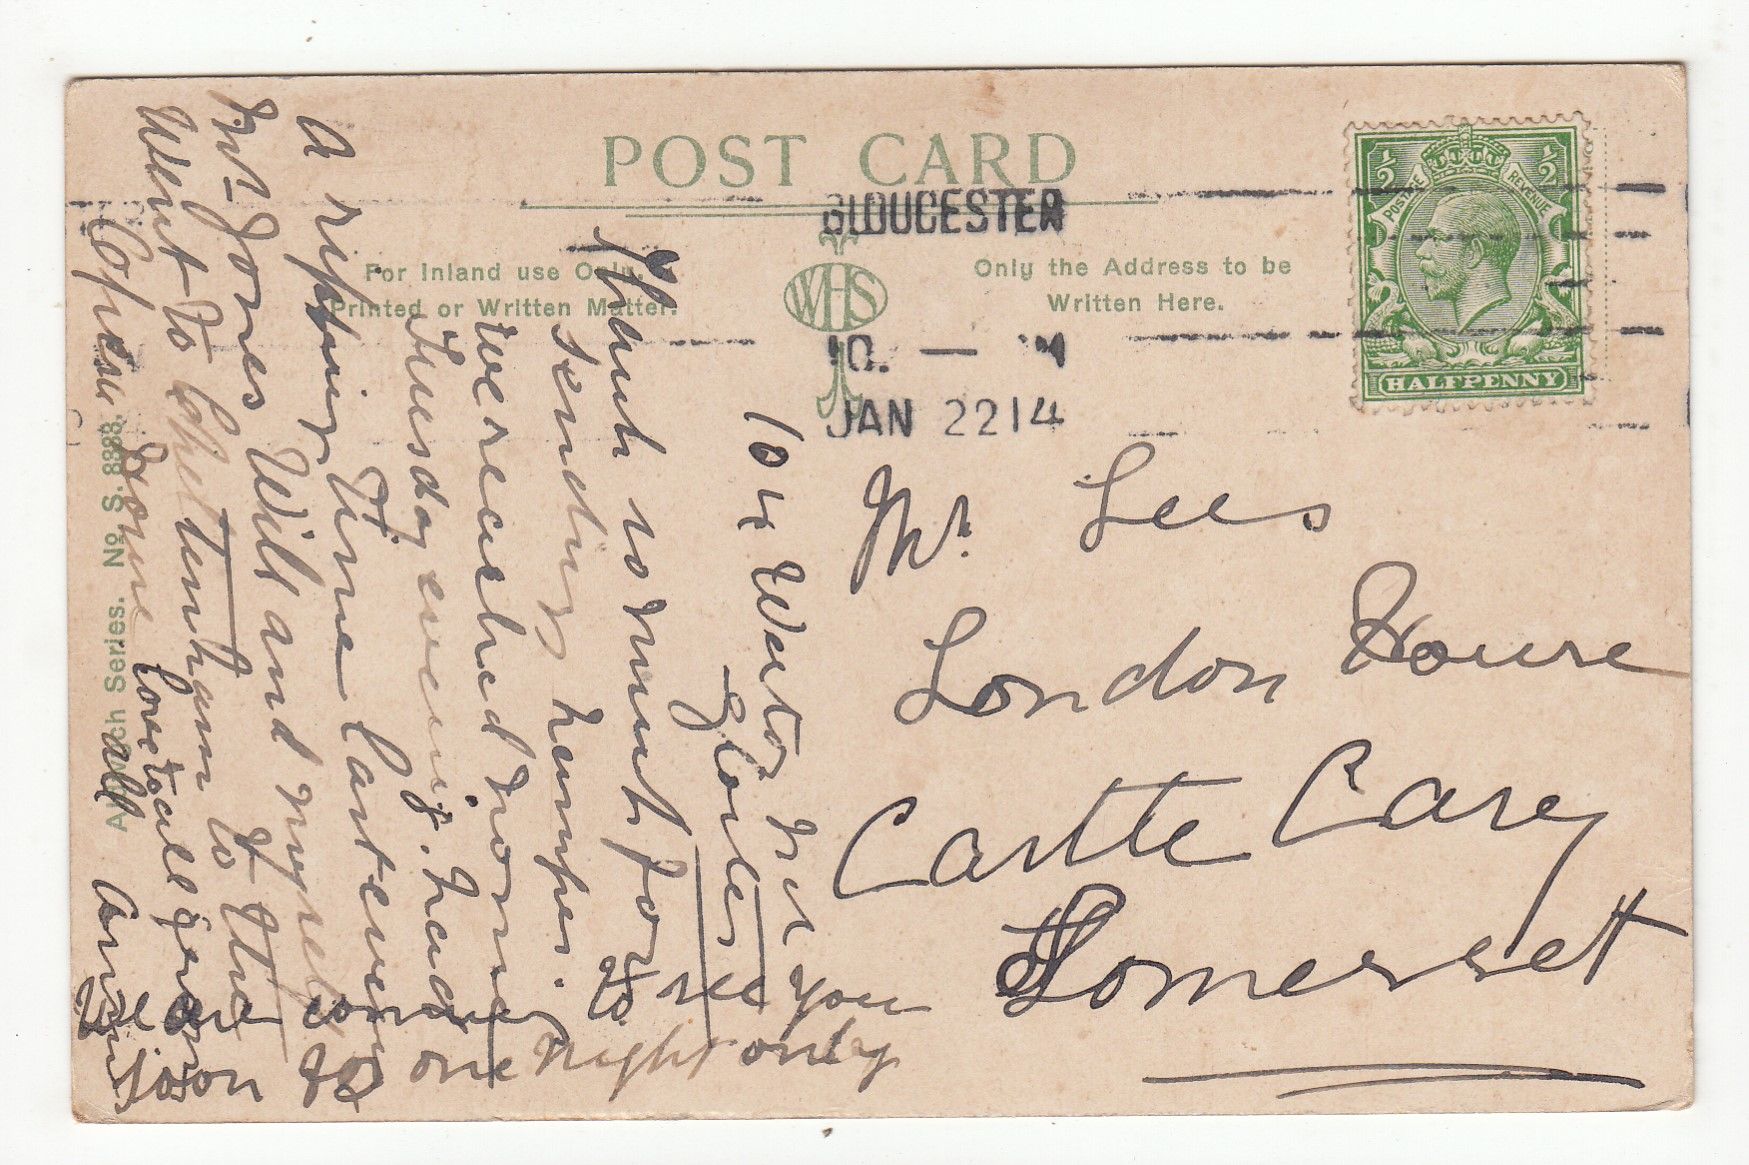 POST CARD
GLOUCESTER
For Inland use Only.
Printed or Written Matter.
Only the Address to be
Written Here.
WHS
JAN 22 14
½
½
POSTAGE
REVENUE
HALFPENNY
Mr. Lees
London House
Castle Carey
Somerset
104
Gloster
Thank so much for
sending hamper.
We reached home
Tuesday evening. had
a ripping time last evening
Mr Jones Will and myself
went to Cheltenham to the
Opera House
love to all
all
We are coming to see you
soon for one night only
Series. No. S. 8888.